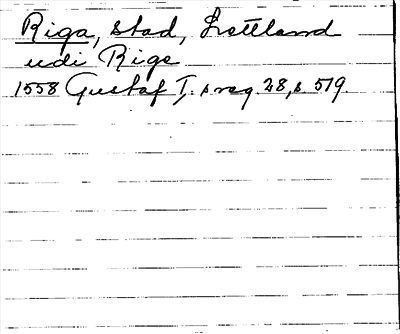 Riga, stad, Lettland
udi Rige
1558 Gustaf I:s reg. 28, s. 579.